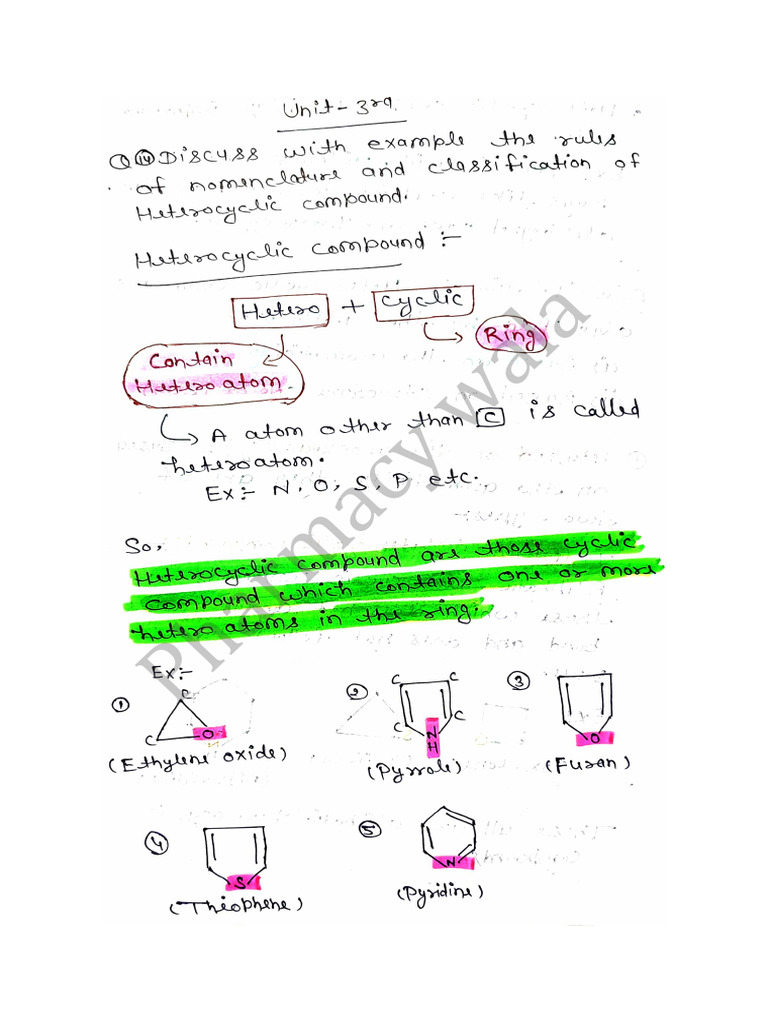 Unit - 3rd
Q (14) Discuss with example the rules
of nomenclature and classification of
Heterocyclic compound.
Heterocyclic compound :-
Hetero + Cyclic
Ring
Contain
Hetero atom.
A atom other than C is called
heteroatom.
Ex:- N, O, S, P etc.
So,
Heterocyclic compound are those cyclic
compound which contains one or more
hetero atoms in the ring.
Ex:-
1 2 3
C C C
C O C N H C O
(Ethylene oxide) (Pyrrole) (Furan)
4 5
S N
(Thiophene) (Pyridine)
Pharmacy wala